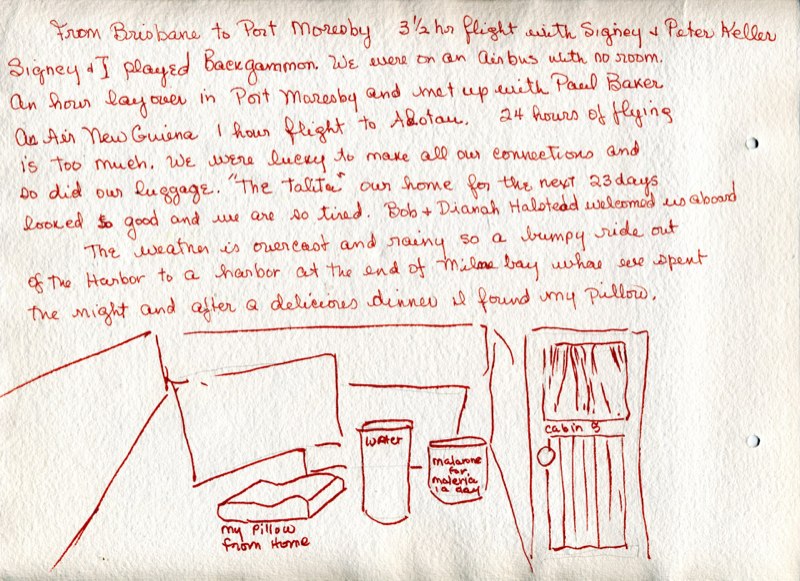 From Brisbane to Port Moresby 3½ hr flight with Signey & Peter Keller
Signey & I played Backgammon. We were on an Airbus with no room.
An hour layover in Port Moresby and met up with Paul Baker
An Air New Guiena 1 hour flight to Alotau. 24 hours of flying
is too much. We were lucky to make all our connections and
so did our luggage. "The Talita" our home for the next 23 days
looked so good and we are so tired. Bob & Dianah Halstead welcomed us aboard
The weather is overcast and rainy so a bumpy ride out
of the Harbor to a harbor at the end of Milne bay whare we spent
the night and after a delicious dinner I found my pillow.
cabin 9
water
malarone
for
maleria
1 a day
my Pillow
from Home